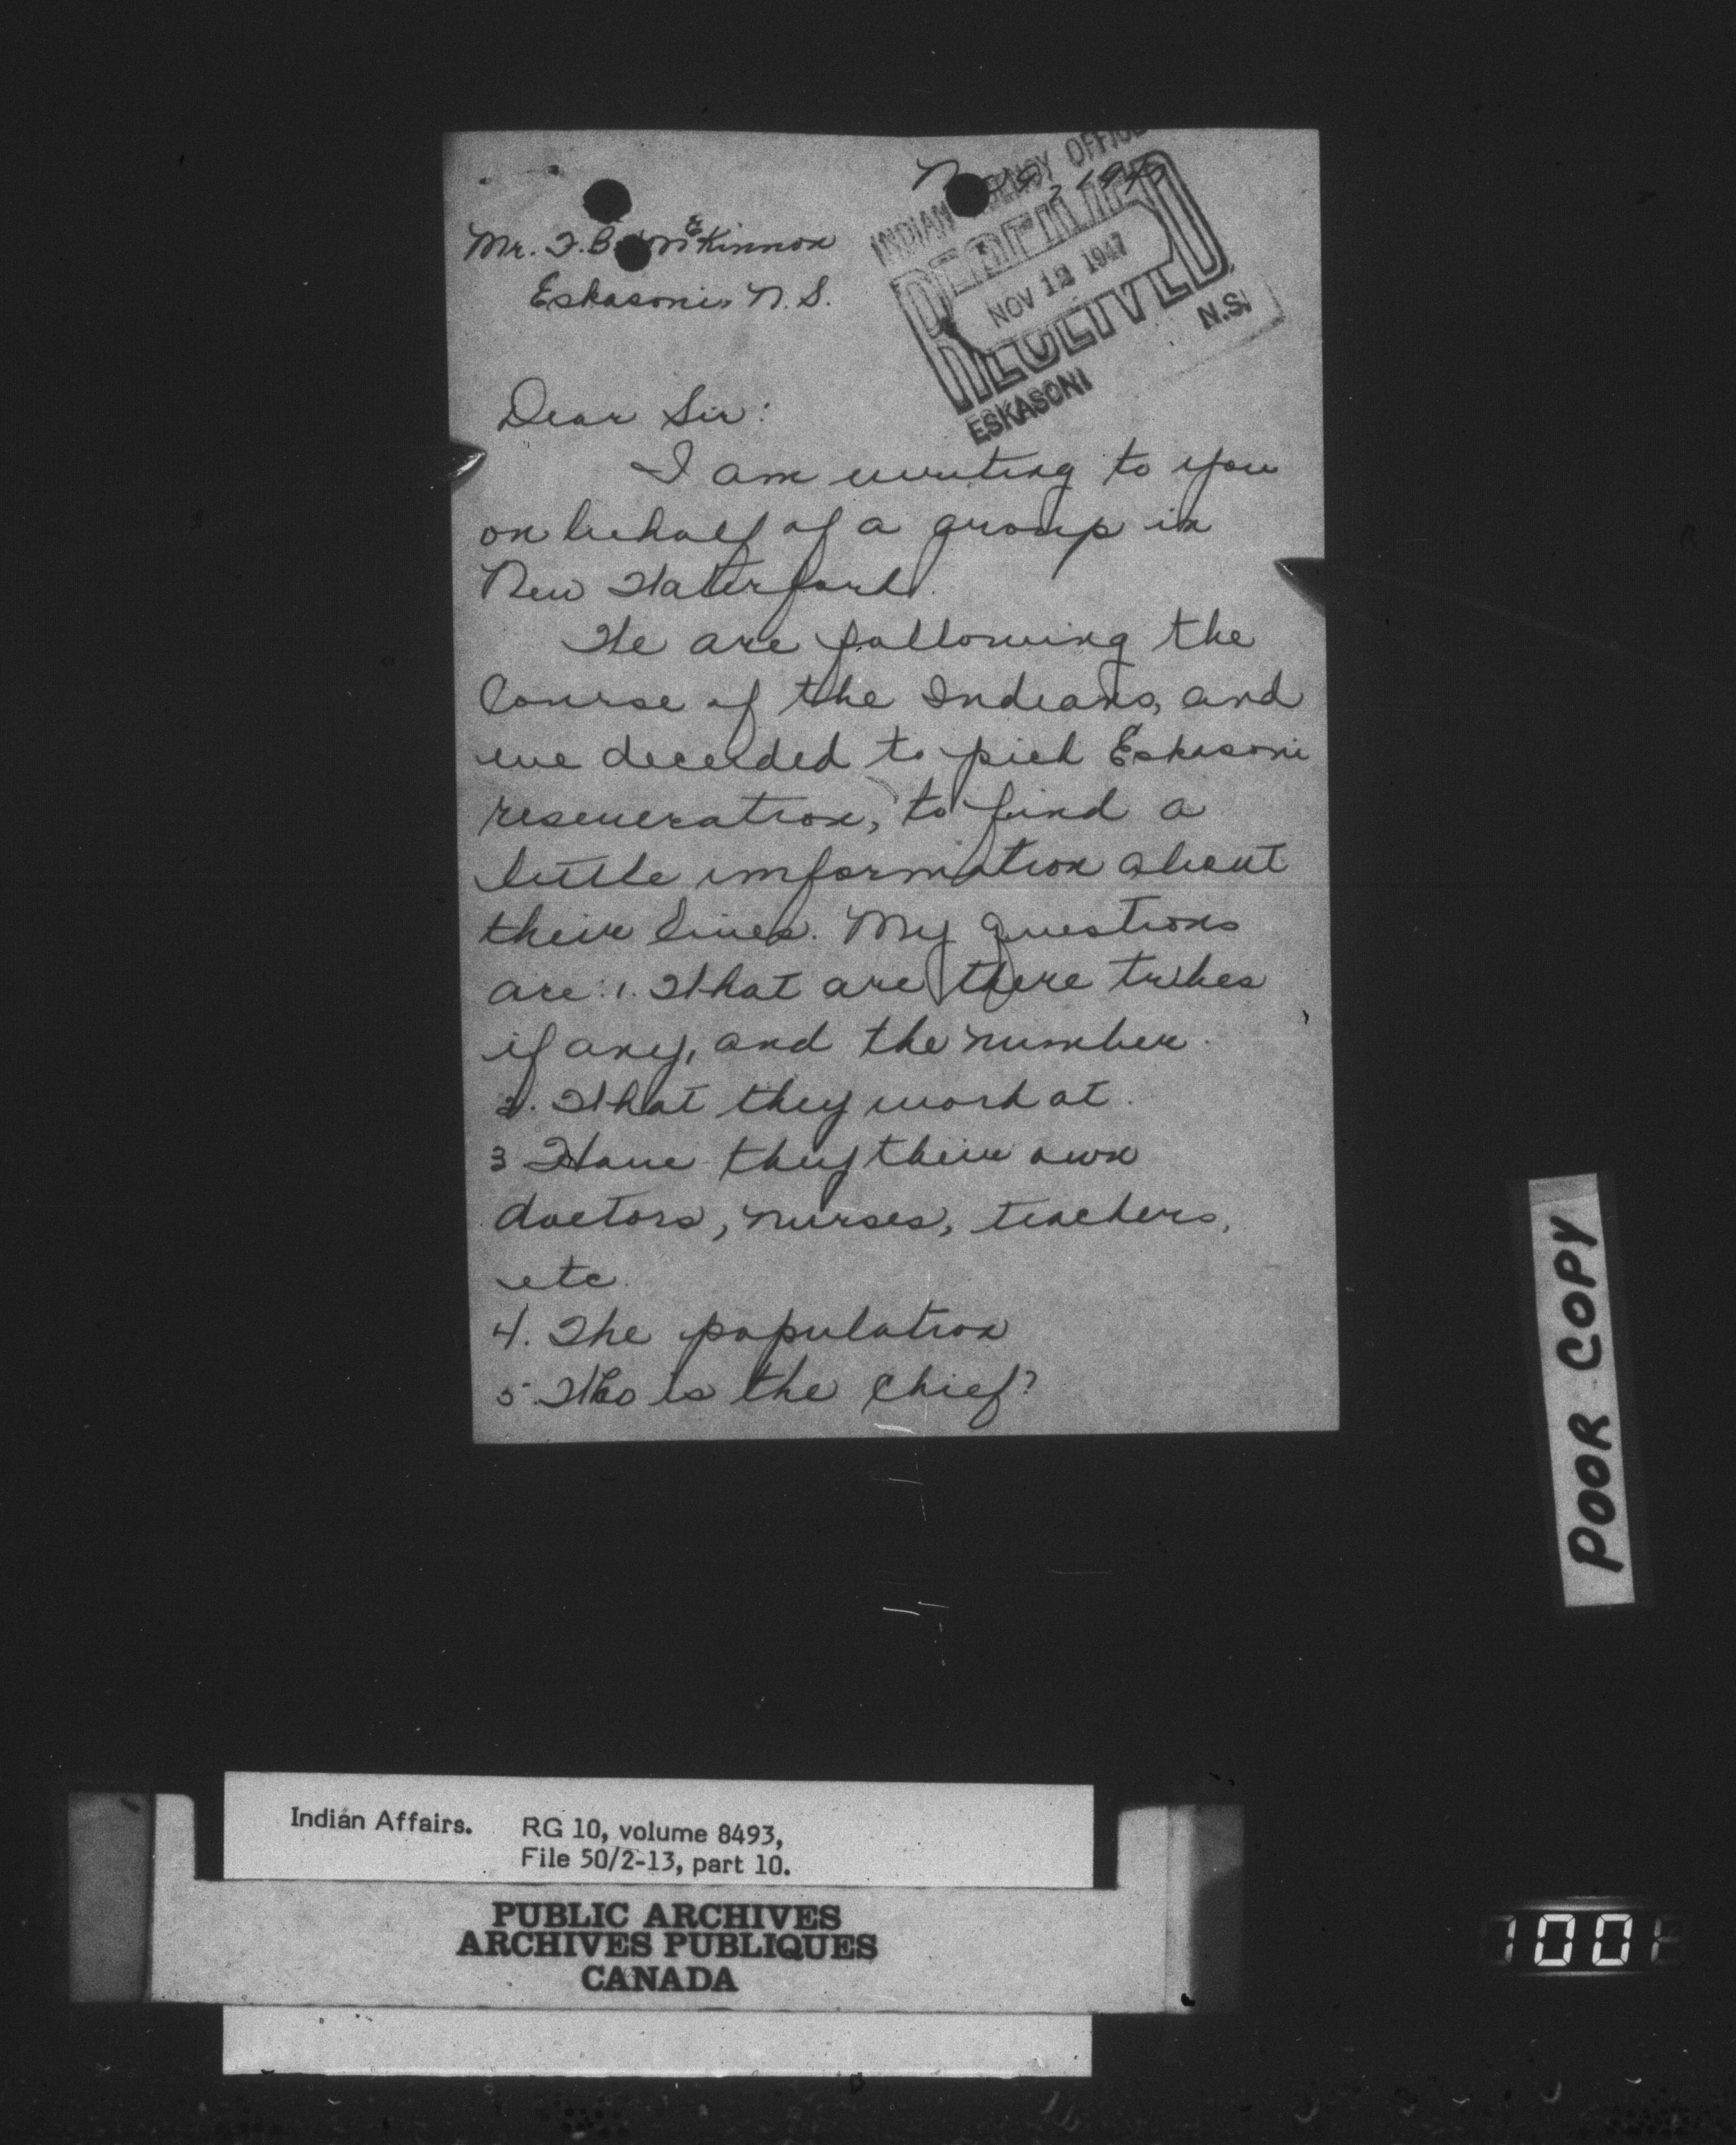 Mr. F. B. McKinnon
Eskasoni, N. S.
INDIAN AGENCY OFFICE
RECEIVED
NOV 12 1947
ESKASONI N.S.
Dear Sir:
I am writing to you
on behalf of a group in
New Waterford.
We are following the
Course of the Indians, and
we deceided to pick Eskasoni
reseueration, to find a
little imformation about
their lives. My questions
are: 1. What are there tribes
if any, and the number.
2. What they work at.
3 Have they their own
doctors, nurses, teachers,
etc.
4. The population
5. Who is the Chief?
POOR COPY
Indian Affairs. RG 10, volume 8493,
File 50/2-13, part 10.
PUBLIC ARCHIVES
ARCHIVES PUBLIQUES
CANADA